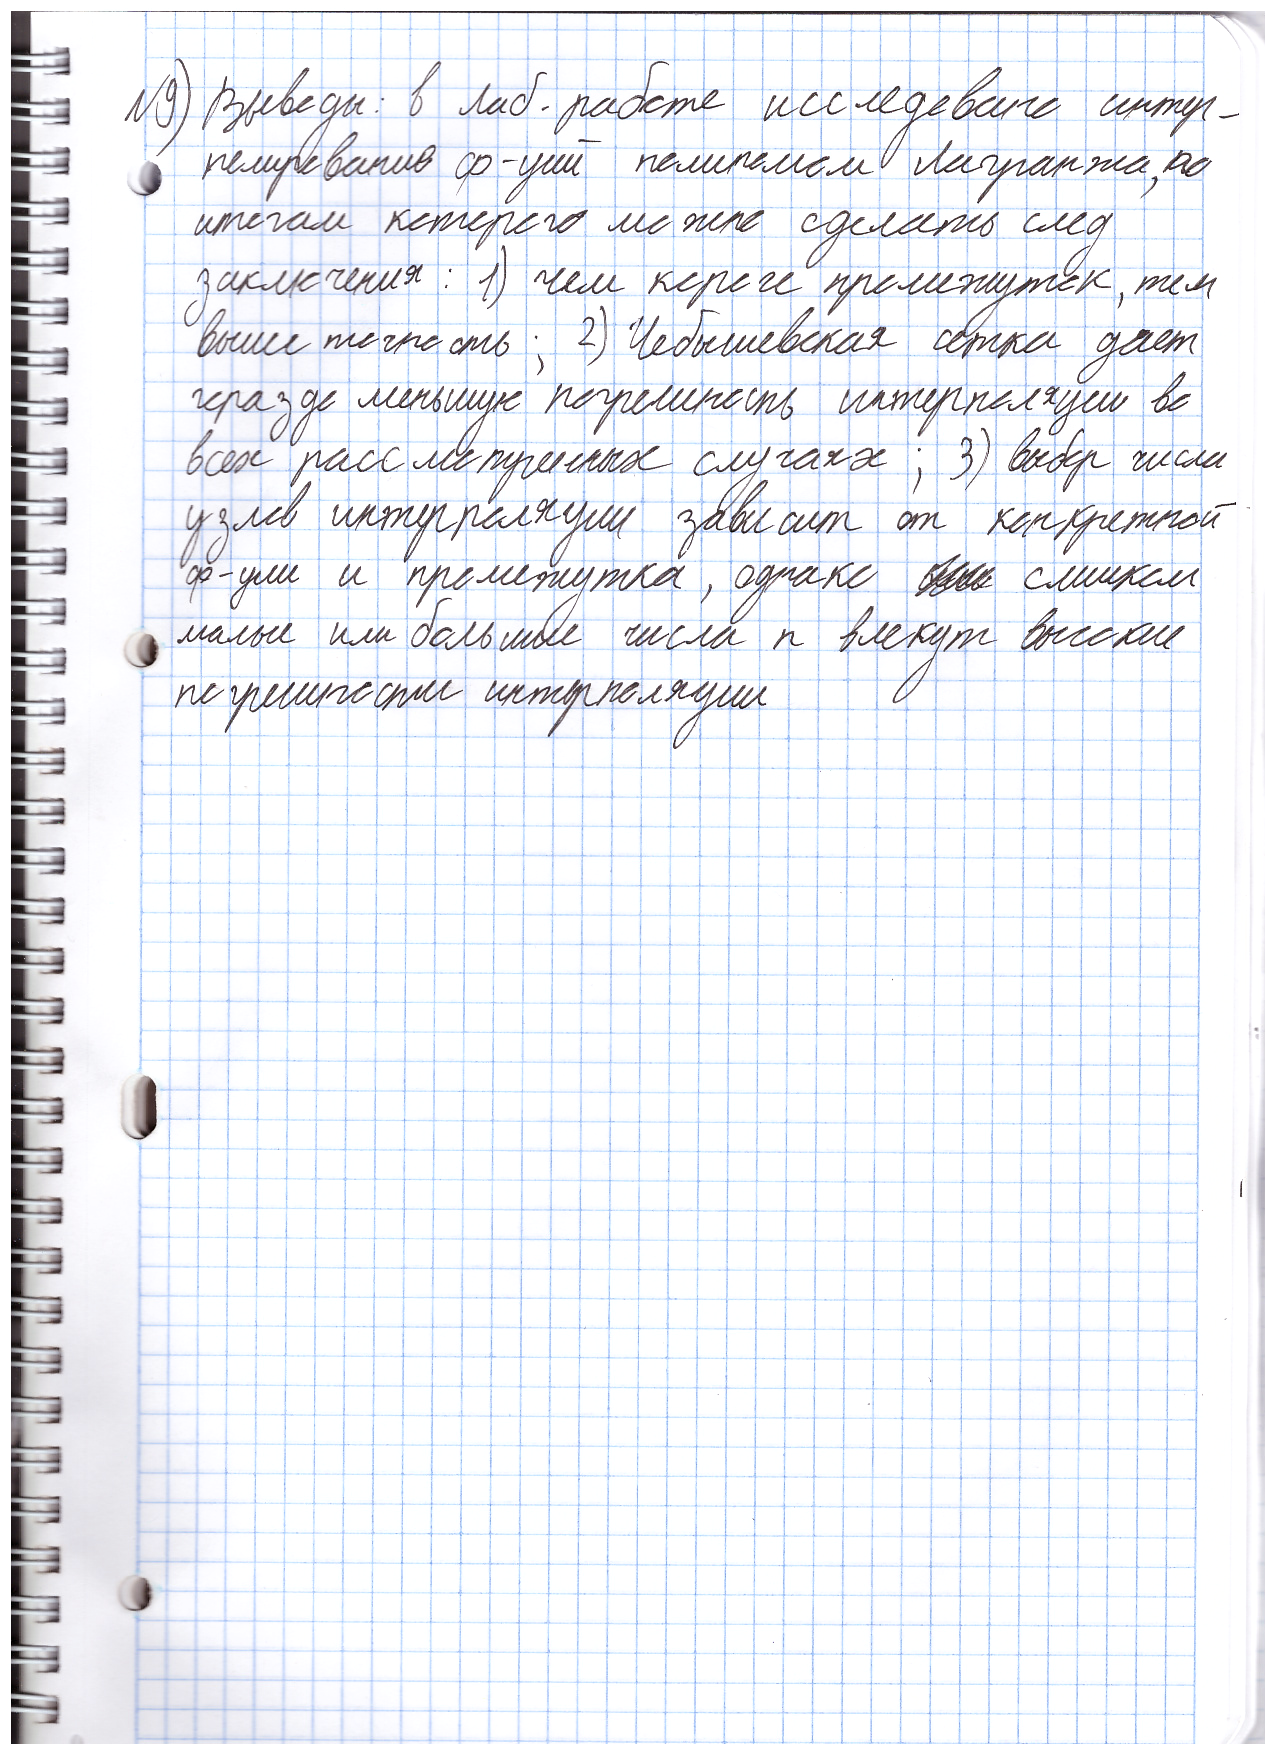 №9) Выводы: в лаб. работе исследовано интер-
полирования ф-ций полиномом Лагранжа, по
итогам которого можно сделать след
заключения: 1) чем короче промежуток, тем
выше точность; 2) Чебышевская сетка дает
гораздо меньшую погрешность интерполяции во
всех рассмотренных случаях; 3) выбор числа
узлов интерполяции зависит от конкретной
ф-ции и промежутка, однако слишком
малые или большие числа n влекут высокие
погрешности интерполяции